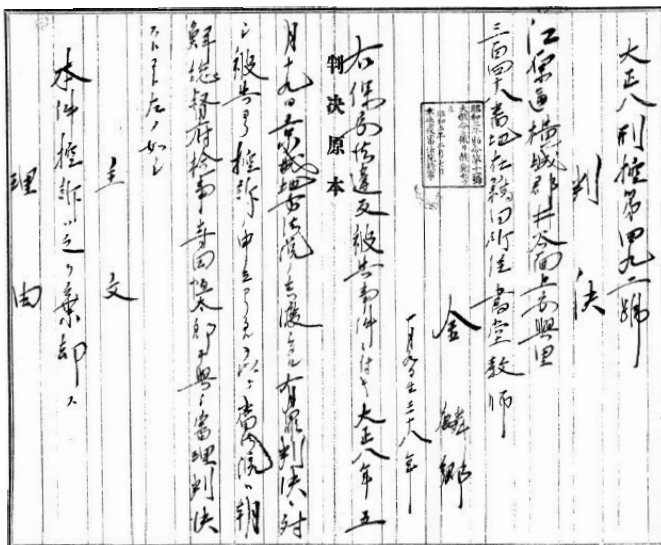 大正八刑控第四九二號
判決
江原道橫城郡井谷面上安興里
三百四十八番地在籍同所住書堂教師
金 鱗鄉
十月九日生三十八年
判決原本
右保安法違反被告事件ニ付キ大正八年五
月十九日京城地方法院ノ言渡シタル有罪判決ニ對
シ被告ヨリ控訴ノ申立アリタルヲ以テ當院ハ朝
鮮總督府檢事寺田恒太郎干與審理判決
スルコト左ノ如シ
主文
本件控訴ハ之ヲ棄却ス
理由